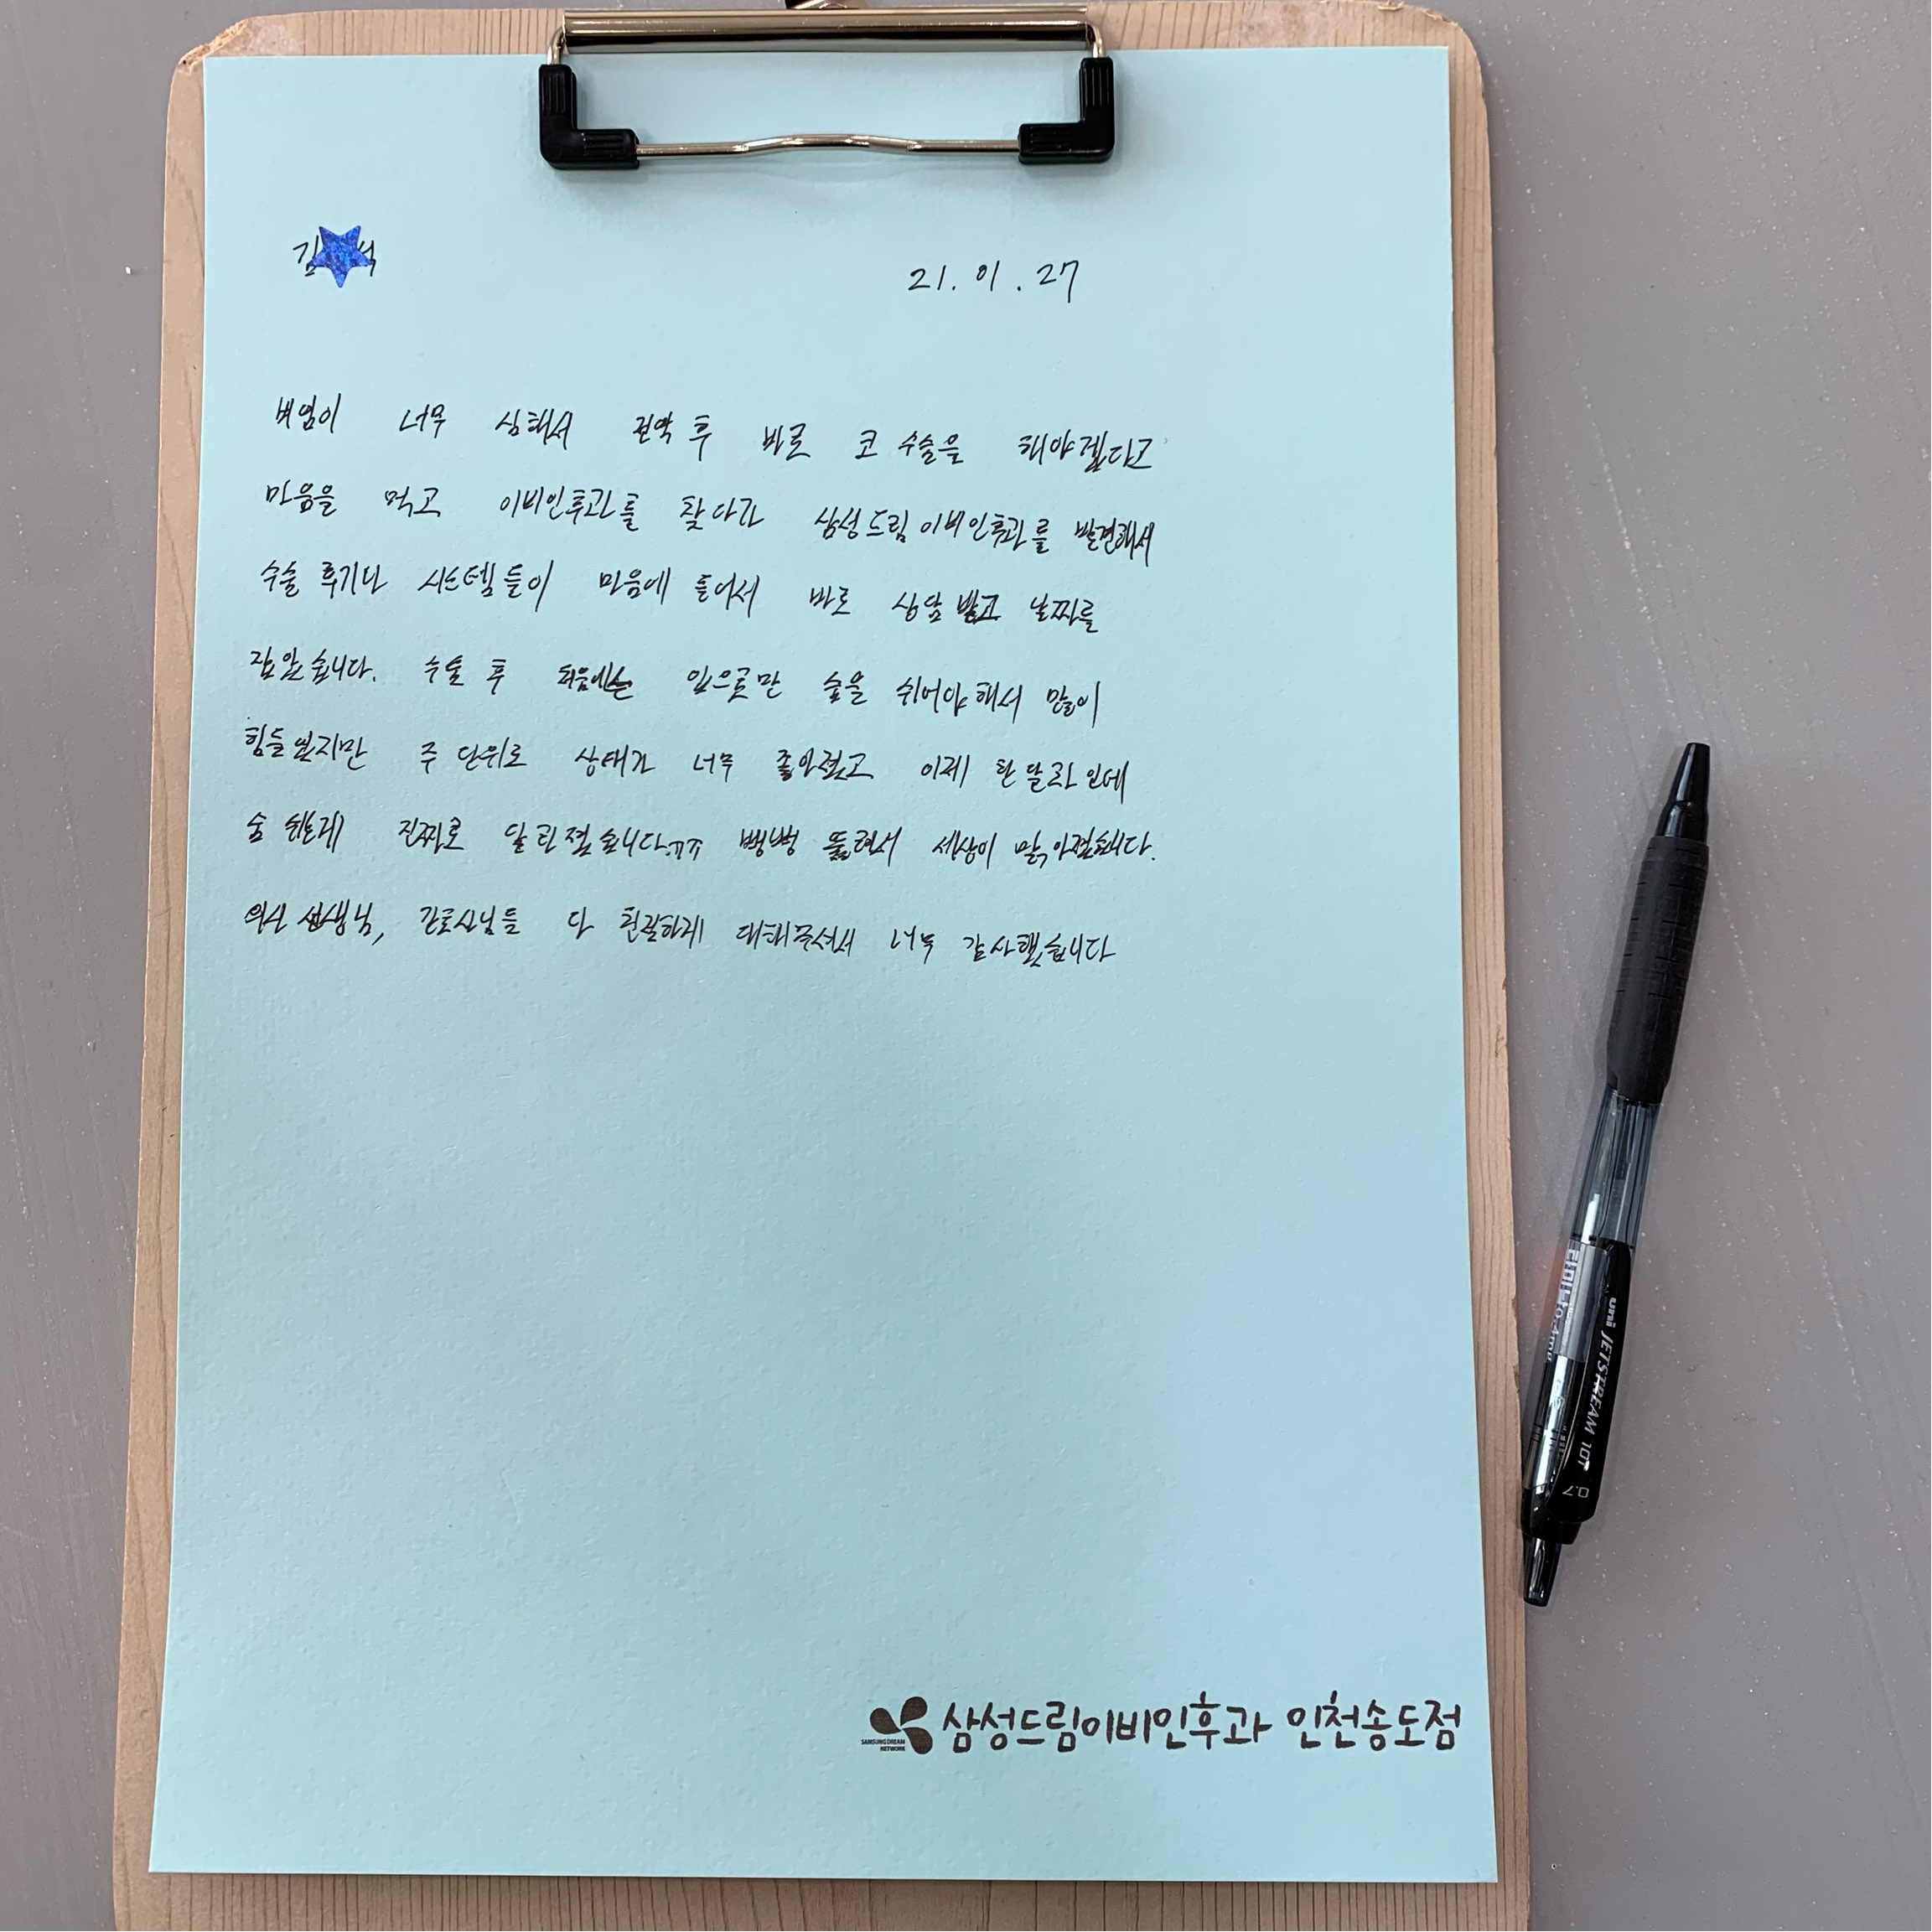 김 석
21. 01. 27
비염이 너무 심해서 전역 후 바로 코 수술을 해야겠다고
마음을 먹고 이비인후과를 찾다가 삼성드림이비인후과를 발견해서
수술 후기나 시스템들이 마음에 들어서 바로 상담 받고 날짜를
잡았습니다. 수술 후 처음에는 입으로만 숨을 쉬어야해서 많이
힘들었지만 주 단위로 상태가 너무 좋아졌고 이제 한달차인데
숨 쉬는게 진짜로 달라졌습니다ㅠㅠ 뻥뻥 뚫려서 세상이 맑아졌습니다.
의사 선생님, 간호사님들 다 친절하게 대해주셔서 너무 감사했습니다
SAMSUNG DREAM
NETWORK
삼성드림이비인후과 인천송도점
uni JETSTREAM 101
0.7